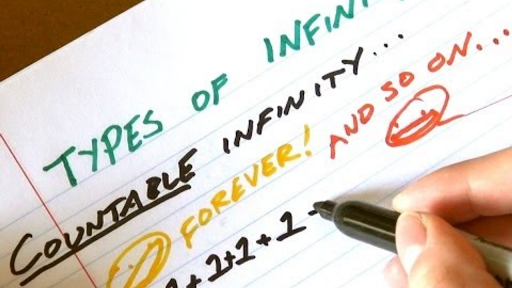 TYPES OF INFINI
COUNTABLE INFINITY...
FOREVER! AND SO ON...
1+1+1+1-